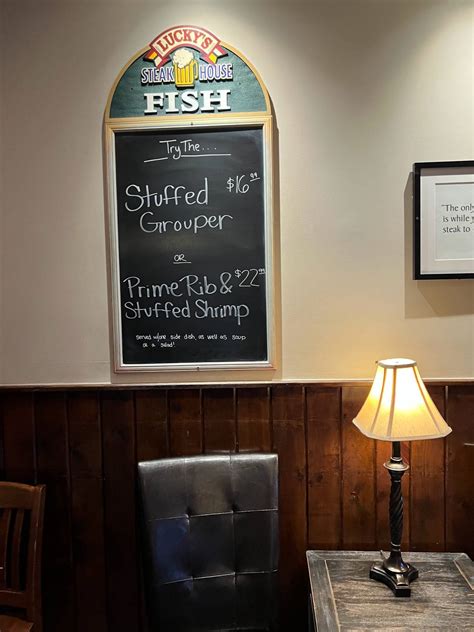 LUCKY'S
STEAK HOUSE
FISH
Try The...
Stuffed $16.99
Grouper
OR
Prime Rib & $22.99
Stuffed Shrimp
served w/one side dish, as well as soup
or a salad!
"The only
is while y
steak to